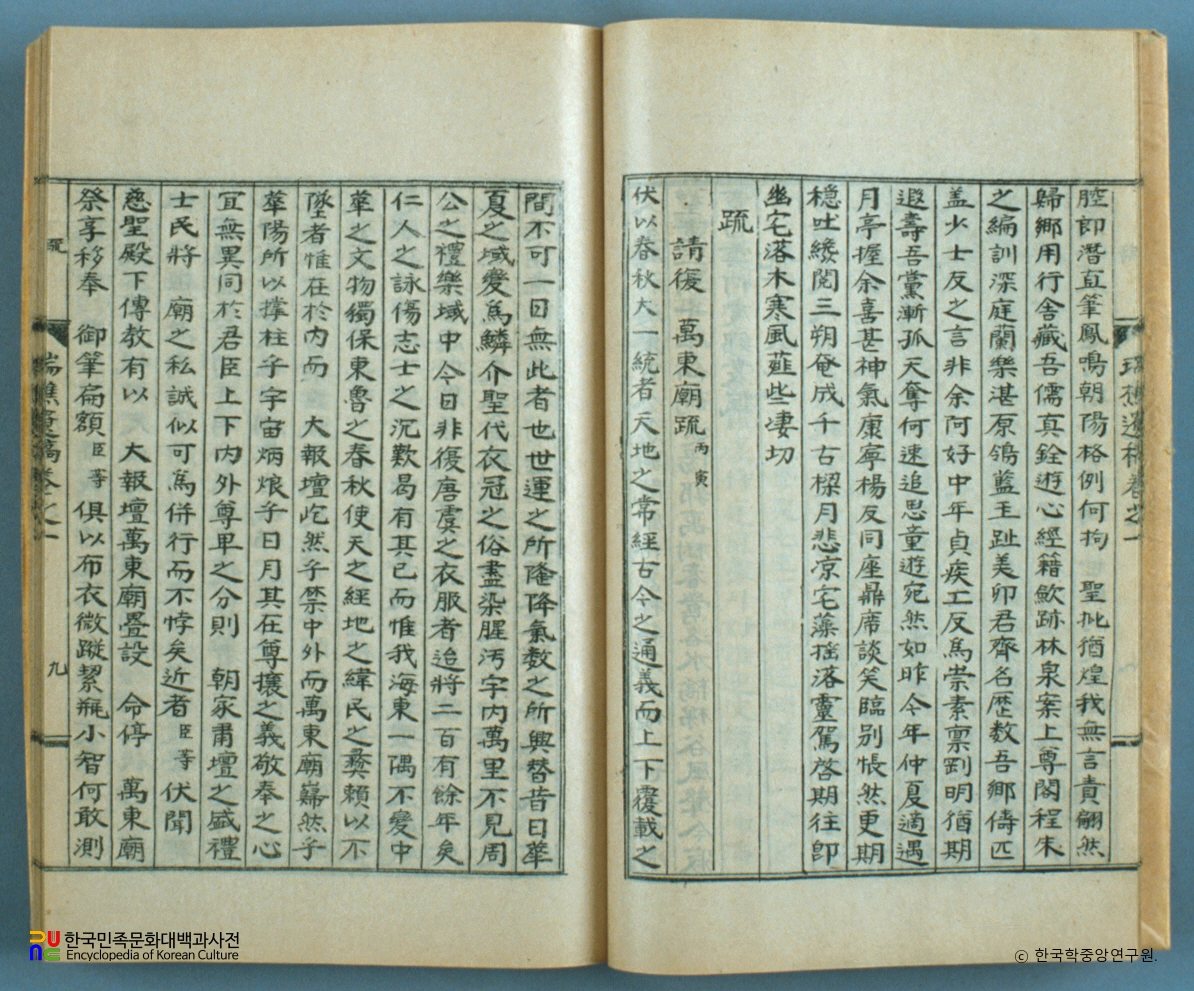 腔即潛直筆鳳鳴朝陽格例何拘 聖批猶煌我無言責翩然
歸鄉用行舍藏吾儒真銓遊心經籍歛跡林泉案上尊閣程朱
之編訓深庭蘭樂湛原鴒藍玉趾美卯君齊名歷數吾鄉儔匹
盖少士友之言非余阿好中年貞疾工反爲祟素禀剛明猶期
遐壽吾黨漸孤天奪何速追思童遊宛然如昨今年仲夏適遇
月亭握余喜甚神氣康寧楊友同座鼎席談笑臨别悵然更期
穩吐繞閱三朔奄成千古樑月悲凉宅藻掩落靈駕啓期往卽
幽宅落木寒風薤些悽切
疏
請復 萬東廟疏 丙寅
伏以春秋大一統者天地之常經古今之通義而上下覆載之
瑞樵遺稿卷之一
間不可一日無此者也世運之所隆降氣數之所興替昔日華
夏之域變爲鱗介聖代衣冠之俗盡染腥汚宇內萬里不見周
公之禮樂域中今日非復唐虞之衣服者迨將二百有餘年矣
仁人之詠傷志士之沉歎曷有其已而惟我海東一隅不變中
華之文物獨保東魯之春秋使天之經地之緯民之彜賴以不
墜者惟在於內而 大報壇屹然乎禁中外而萬東廟巋然乎
華陽所以撑柱乎宇宙炳烺乎日月其在尊攘之義敬奉之心
宜無異同於君臣上下內外尊卑之分則 朝家肅壇之盛禮
士民將 廟之私誠似可爲併行而不悖矣近者 臣等 伏聞
慈聖殿下傳教有以 大報壇萬東廟疊設 命停 萬東廟
祭享移奉 御筆扁額 臣等 俱以布衣微蹤絜瓶小智何敢測
疏
瑞樵遺稿卷之一
九
한국민족문화대백과사전
Encyclopedia of Korean Culture
© 한국학중앙연구원.